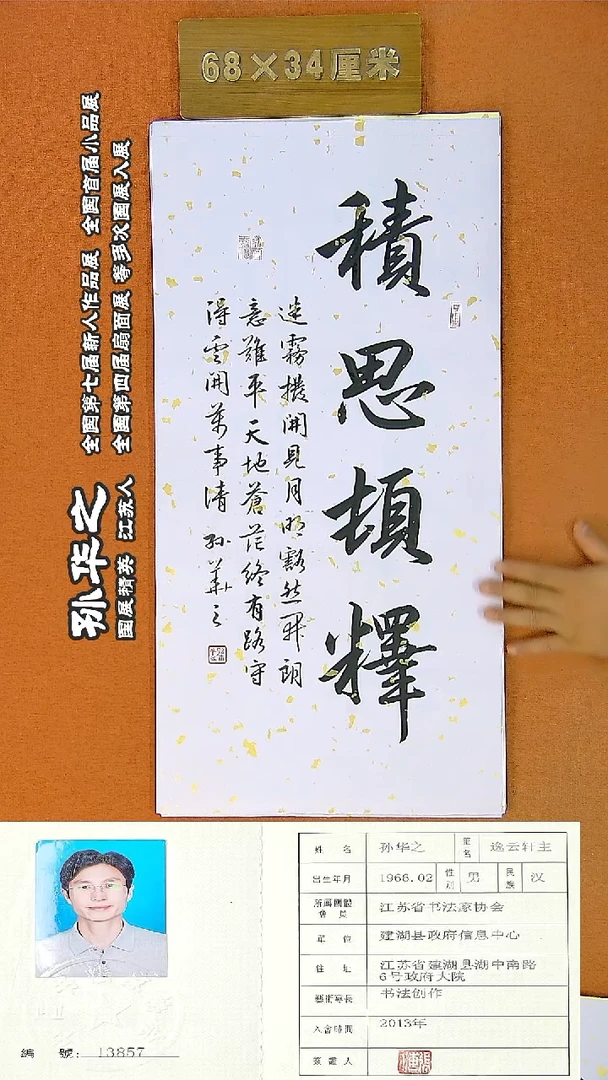 68×34厘米
積思頓釋
迷霧撥開見月明豁然开朗
意難平天地蒼茫終有路守
得雲開萬事清 孙華之
孙华之
国展精英 江苏人
全国第七届新人作品展 全国首届小品展
全国第四届扇面展 等多次国展入展
姓 名 孙华之 笔名 逸云轩主
出生年月 1966.02 性别 男 民族 汉
所屬團體會員 江苏省书法家协会
單 位 建湖县政府信息中心
住 址 江苏省建湖县湖中南路
6号政府大院
藝術專長 书法创作
入會時間 2013年
簽證人
編 號: 13857